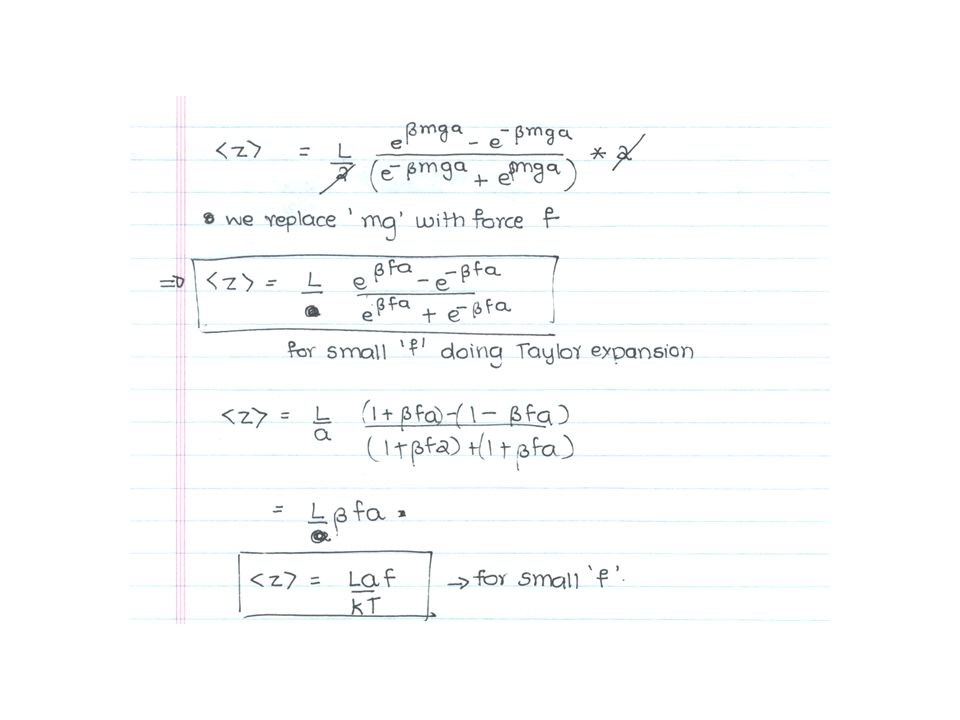 <z> = L/2 (e^{βmga} - e^{-βmga})/(e^{-βmga} + e^{βmga}) * 2
• we replace 'mg' with force f
⇒ <z> = L (e^{βfa} - e^{-βfa})/(e^{βfa} + e^{-βfa})
for small 'f' doing Taylor expansion
<z> = L/a ((1+βfa)-(1-βfa))/((1+βfa)+(1+βfa))
= L βfa.
<z> = Laf/kT → for small 'f'.